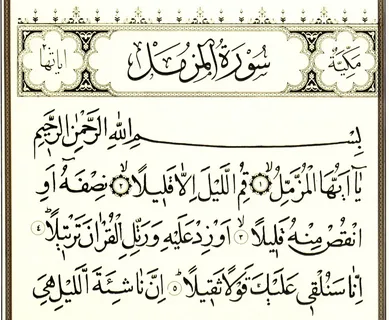 مكية سورة المزمل اياتها ٢٠
بِسْمِ اللهِ الرَّحْمٰنِ الرَّحِيمِ
يَا اَيُّهَا الْمُزَّمِّلُۙ ١ قُمِ الَّيْلَ اِلَّا قَلِيلًاۙ ٢ نِصْفَهُٓ اَوِ
انْقُصْ مِنْهُ قَلِيلًاۙ ٣ اَوْ زِدْ عَلَيْهِ وَرَتِّلِ الْقُرْاٰنَ تَرْتِيلًاۜ ٤
اِنَّا سَنُلْقِي عَلَيْكَ قَوْلًا ثَقِيلًا ٥ اِنَّ نَاشِئَةَ الَّيْلِ هِيَ